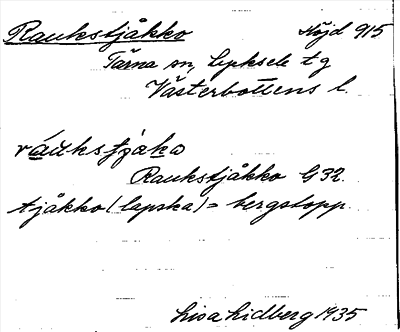 Raukstjåkko Höjd 915
Tärna sn, Lycksele tg
Västerbottens l.
ráukstjåkå
Raukstjåkko G 32.
tjåkko (lapska) = bergstopp.
Lisa Lidberg 1935